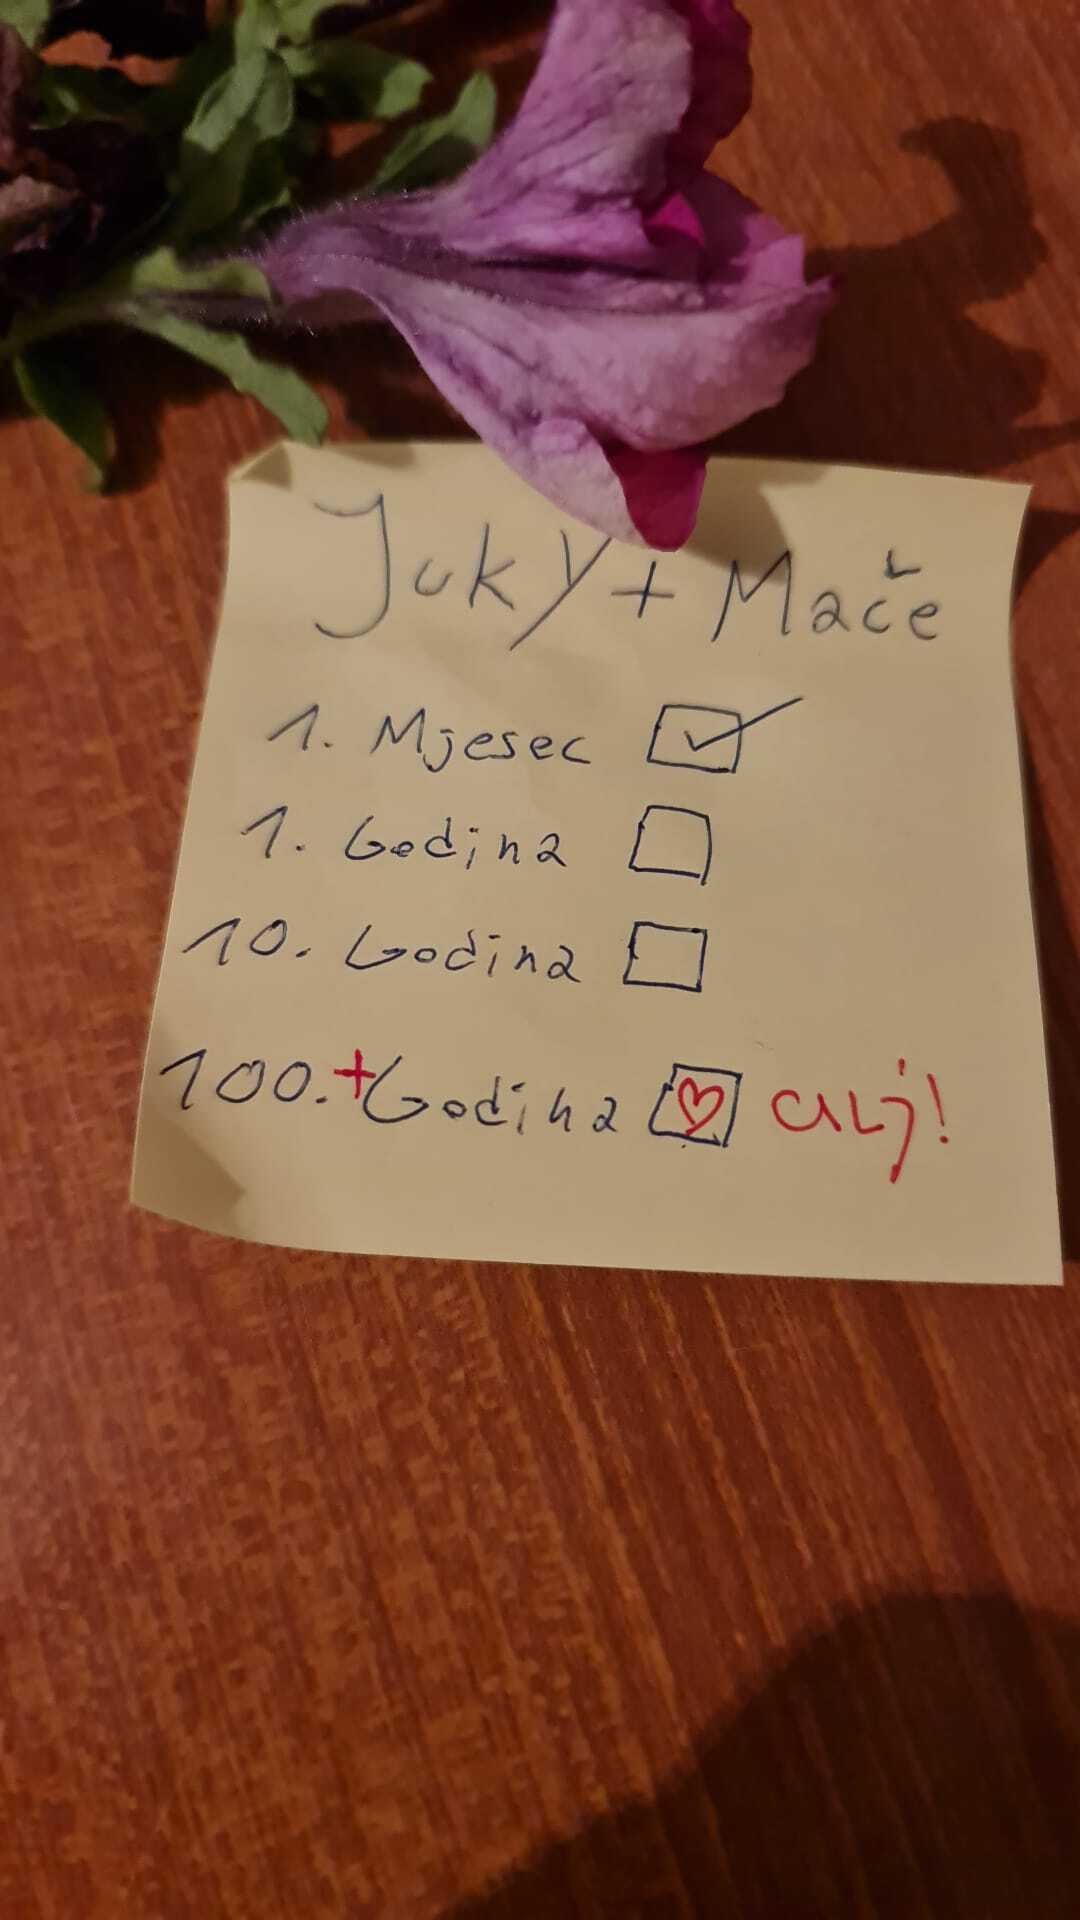 Juky + Mače
1. Mjesec
1. Godina
10. Godina
100.+ Godina cilj!